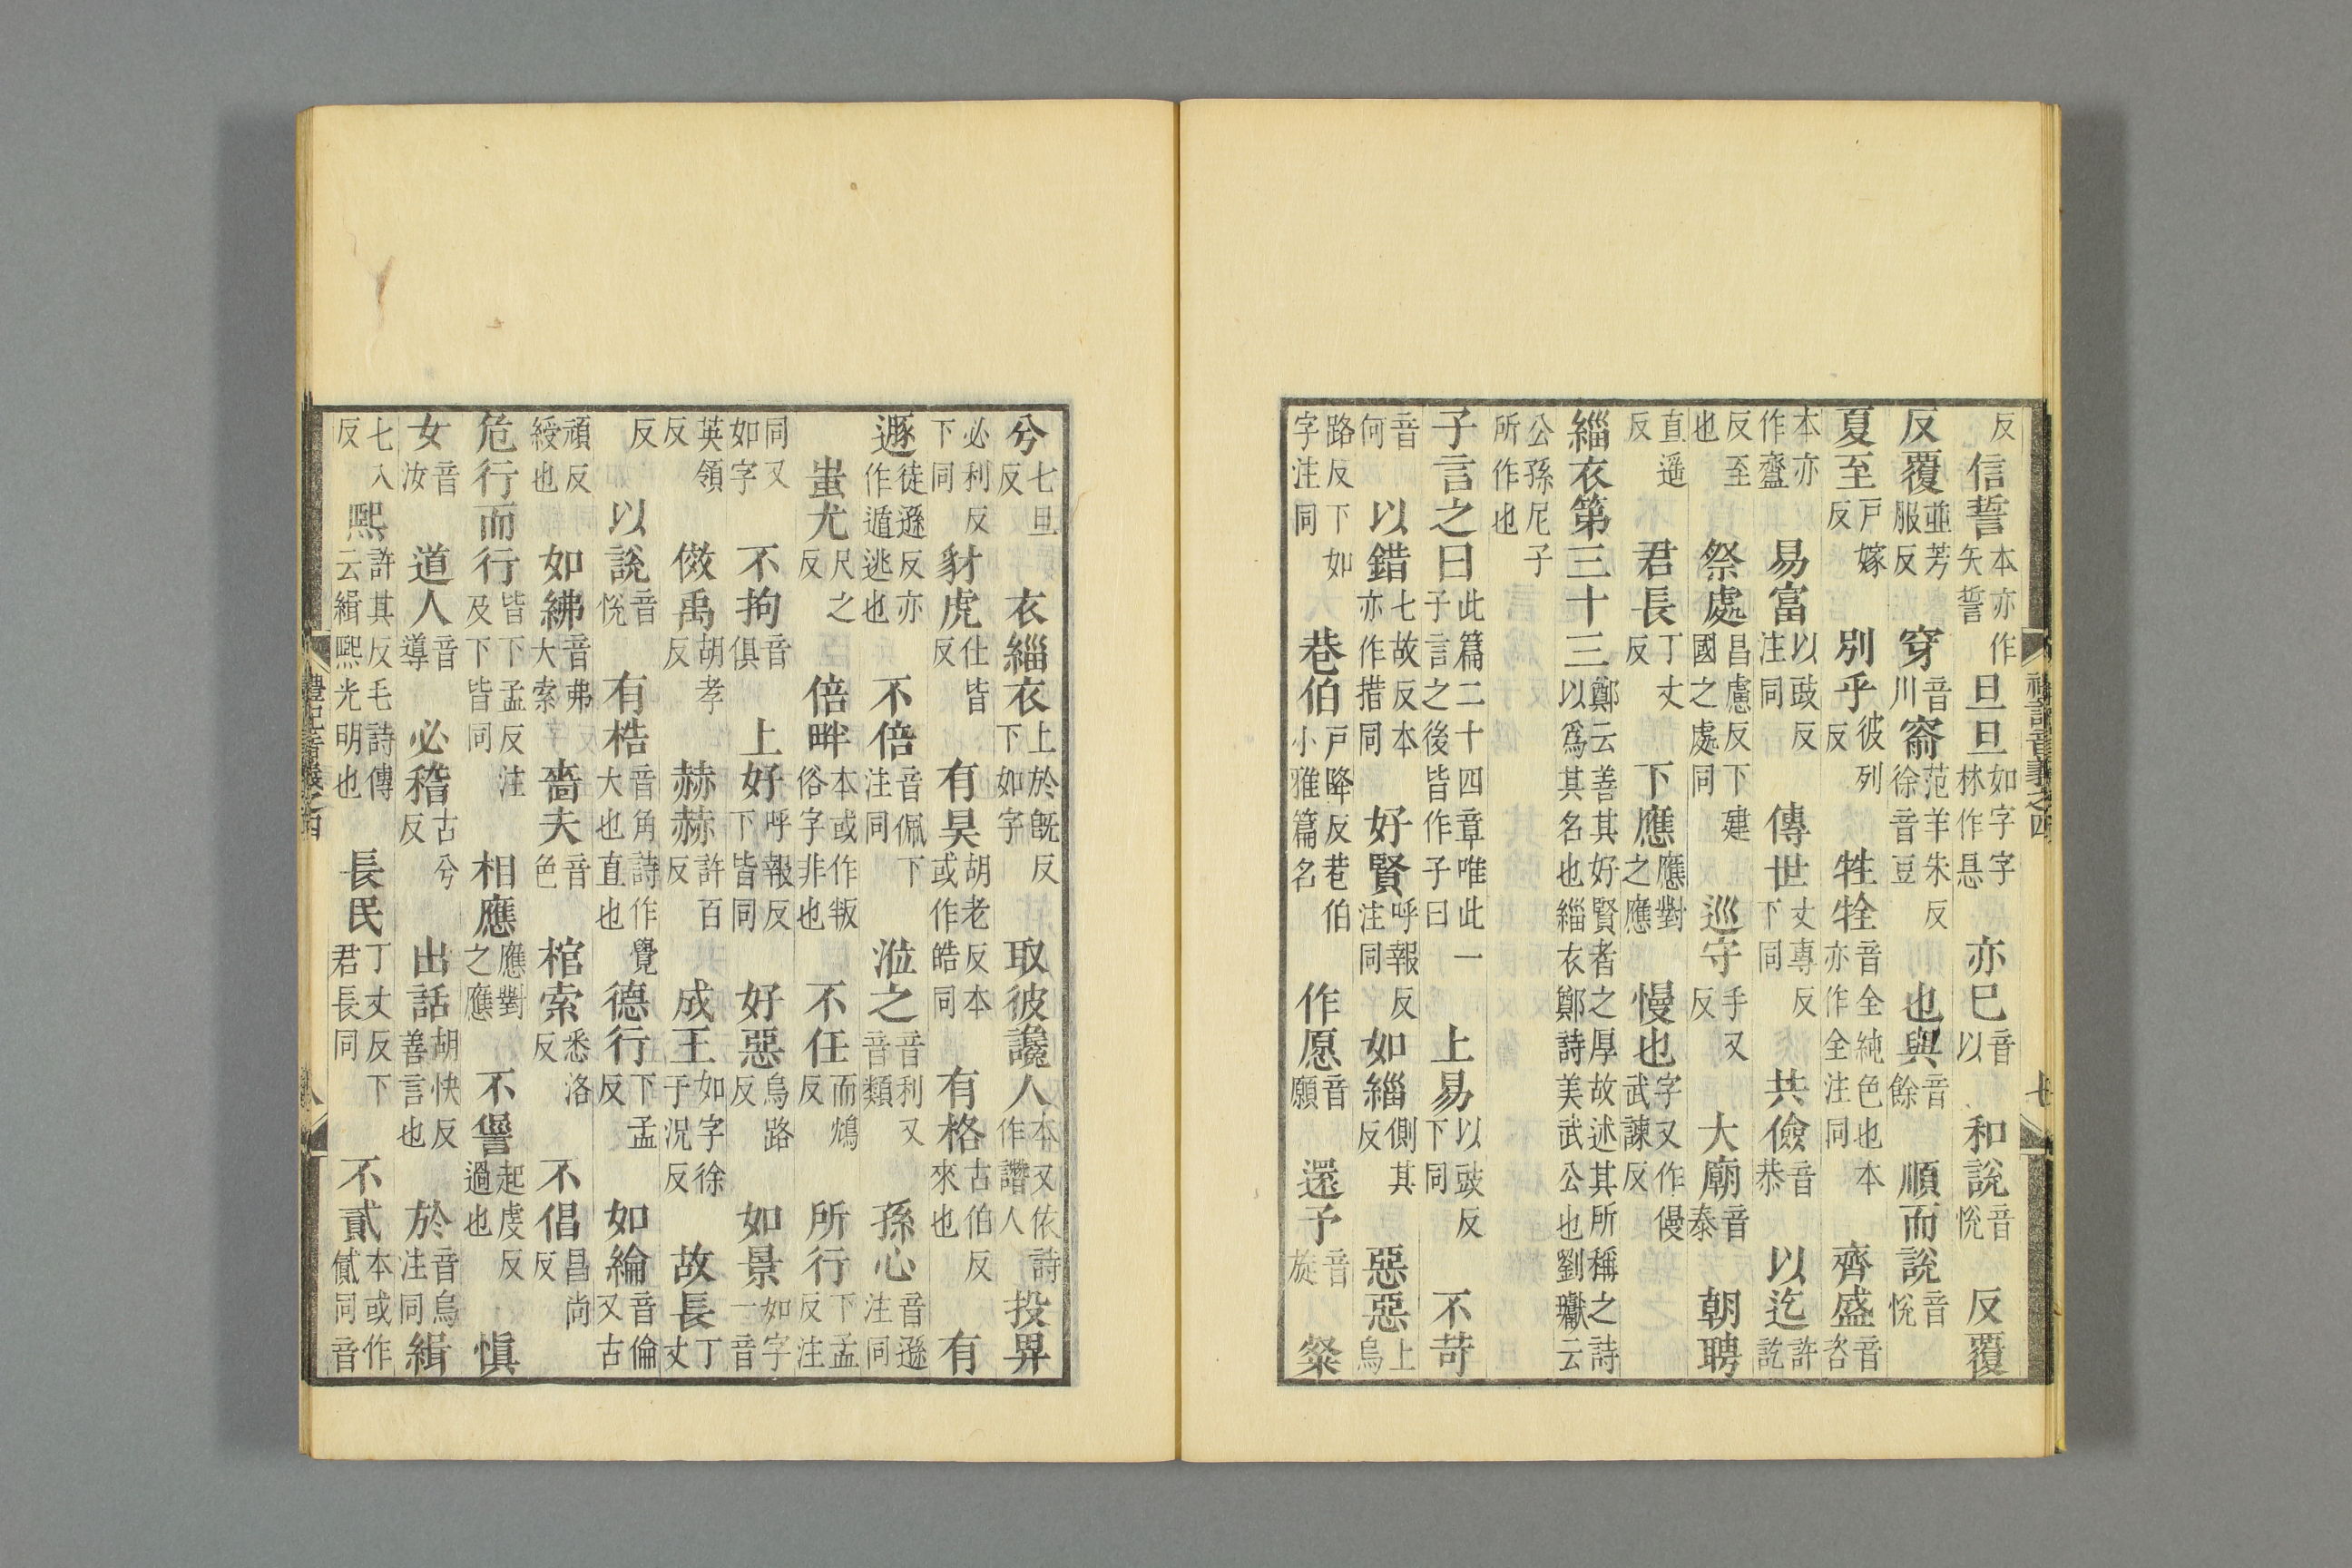 反信誓本亦作矢誓旦旦如字字林作悬亦巳音以和說音悅反覆
反覆並芳服反穿音川窬范羊朱反徐音豆也與音餘順而說音悅
夏至戸嫁反別乎彼列反牲牷音全純色也本亦作全注同齊盛音咨
本亦作齍易富以豉反注同傳世丈專反下同共儉音恭以迄許訖
反至也祭處昌慮反下建國之處同巡守手又反大廟音泰朝聘
直遥反君長丁丈反下應應對之應慢也字又作僈武諫反
緇衣第三十三鄭云善其好賢者之厚故述其所稱之詩以爲其名也緇衣鄭詩美武公也劉瓛云
公孫尼子所作也
子言之曰此篇二十四章唯此一子言之後皆作子曰上易以豉反下同不苛
音何以錯七故反本亦作措同好賢呼報反注同如緇側其反惡惡上烏
路反下如字注同巷伯戸降反巷伯小雅篇名作愿音願還予音旋粲
兮七旦反衣緇衣上於旣反下如字取彼讒人本又依詩作譖人投畀
必利反下同豺虎仕皆反有昊胡老反本或作皓同有格古伯反來也有
遯徒遜反亦作遁逃也不倍音佩下注同涖之音利又音類孫心音遜注同
蚩尤尺之反倍畔本或作叛俗字非也不任而鴆反所行下孟反注
同又如字不拘音俱上好呼報反下皆同好惡烏路反如景如字一音
英領反傚禹胡孝反赫赫許百反成王如字徐于況反故長丁丈
反以說音悅有梏音角詩作覺大也直也德行下孟反如綸音倫又古
頑反綬也如紼音弗大索嗇夫音色棺索悉洛反不倡昌尚反
危行而行皆下孟反注及下皆同相應應對之應不諐起虔反過也愼
女音汝道人音導必稽古兮反出話胡快反善言也於音烏注同緝
七入反熙許其反毛詩傳云緝熙光明也長民丁丈反下君長同不貳本或作貣同音
禮記音義之四
七